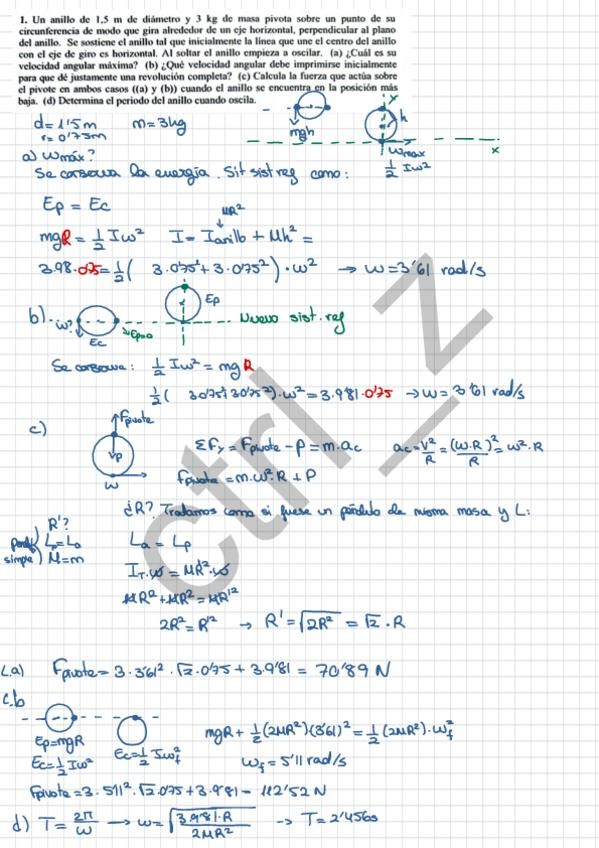 1. Un anillo de 1,5 m de diámetro y 3 kg de masa pivota sobre un punto de su
circunferencia de modo que gira alrededor de un eje horizontal, perpendicular al plano
del anillo. Se sostiene el anillo tal que inicialmente la línea que une el centro del anillo
con el eje de giro es horizontal. Al soltar el anillo empieza a oscilar. (a) ¿Cuál es su
velocidad angular máxima? (b) ¿Qué velocidad angular debe imprimirse inicialmente
para que dé justamente una revolución completa? (c) Calcula la fuerza que actúa sobre
el pivote en ambos casos ((a) y (b)) cuando el anillo se encuentra en la posición más
baja. (d) Determina el periodo del anillo cuando oscila.
d= 1'5m m=3kg
r= 0'75m
mgh
x
h
x
ωmax
½ Iω²
a) ωmáx?
Se conserva la energía. Sit sist reg como:
Ep = Ec
MR²
mgR = ½ Iω² I= Ianillo + Mh² =
3.98·075=½( 3·075²+3·075²)·ω² → ω=3'61 rad/s
b) ω? Ec Ep=0 Ep Nuevo sist.reg
Se conserva: ½ Iω² = mgR
½( 3075²+3075²)·ω²=3.981·075 → ω=3'61 rad/s
c) Fpivote
P
ω
ΣFy = Fpivote - P = m·ac ac=V²/R = (ω·R)²/R = ω²·R
Fpivote = m·ω²·R + P
¿R? Tratamos como si fuese un péndulo de misma masa y L:
R'?
pend simple L=La M=m
La = Lp
IT·ω = MR'²·ω
MR²+MR²=MR'²
2R²=R'² → R'=√2R² = √2·R
c.a) Fpivote= 3·3'61²·√2·075 + 3·9'81 = 70'89 N
c.b
Ep=mgR
Ec=½ Iω²
Ec=½ Iωf²
mgR+½(2MR²)(3'61)²=½(2MR²)·ωf²
ωf= 5'11 rad/s
Fpivote=3·511²·√2·075+3·981= 112'52N
d) T= 2π/ω → ω=√3·981·R/2MR² → T=2'456s
ctrl_z